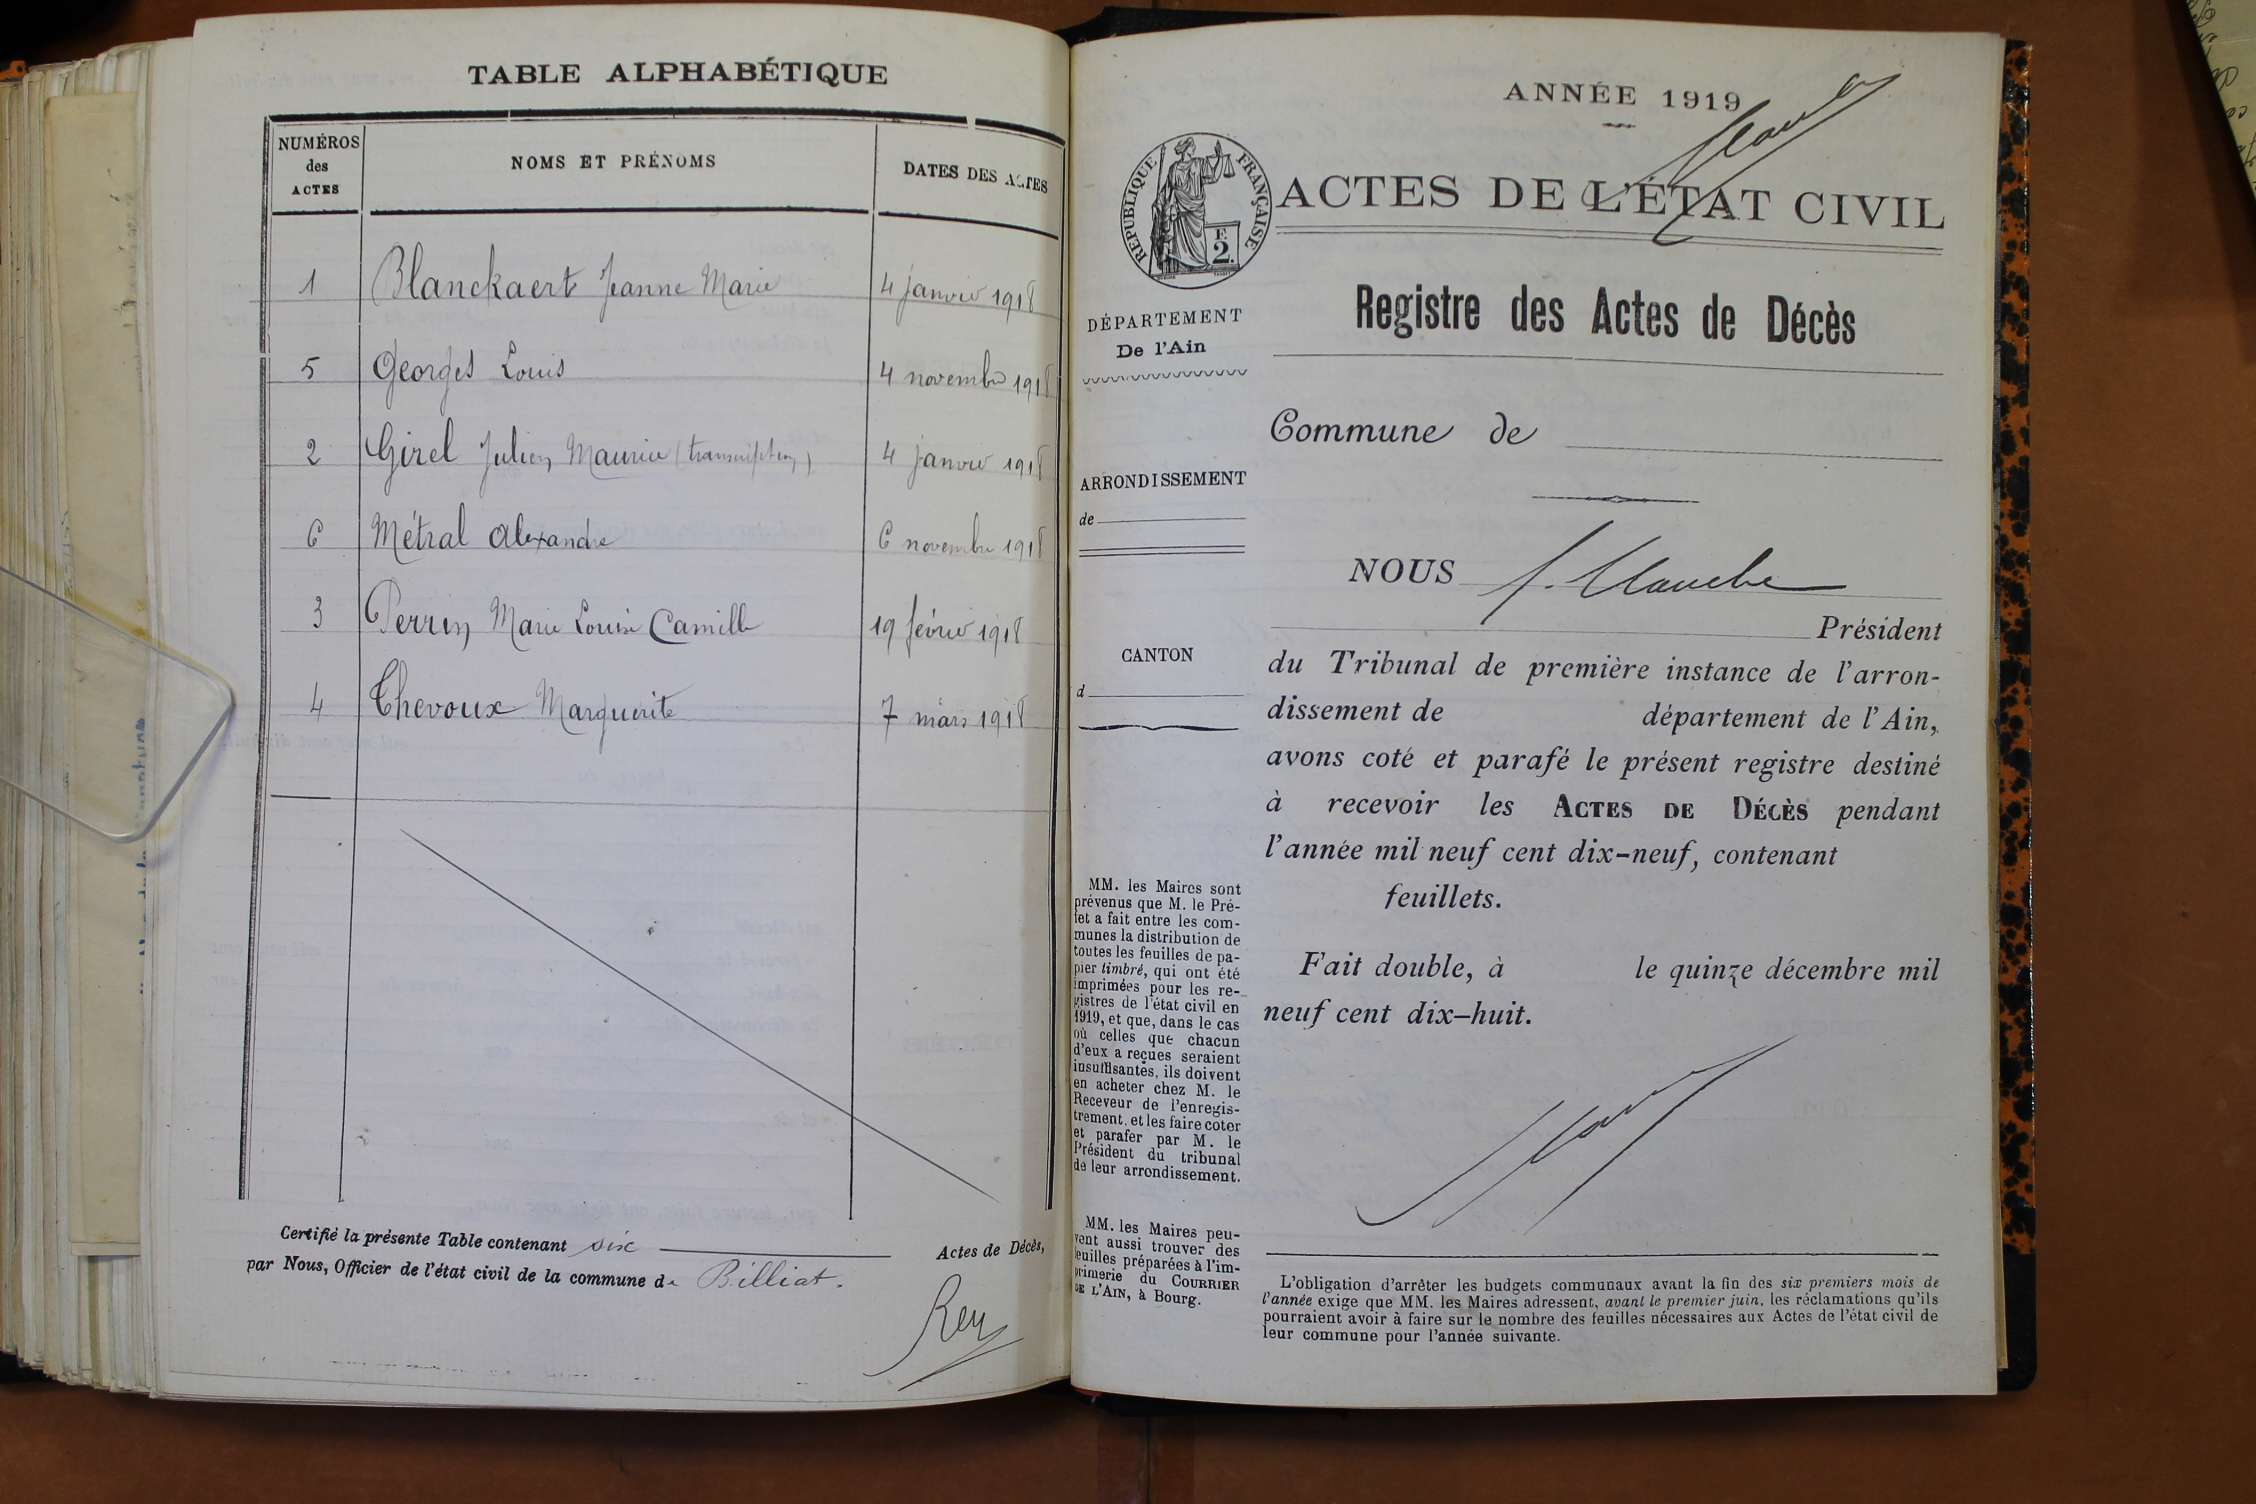 TABLE ALPHABÉTIQUE
NUMÉROS des ACTES NOMS ET PRÉNOMS DATES DES ACTES
1 Blanckaert Jeanne Marie 4 janvier 1918
5 Georges Louis 4 novembre 1918
2 Girel Julien Maurice (transcription) 4 janvier 1918
6 Métral Alexandre 6 novembre 1918
3 Perrin Marie Louise Camille 19 février 1918
4 Thevoux Marguerite 7 mars 1918
Certifié la présente Table contenant six Actes de Décès,
par Nous, Officier de l'état civil de la commune de Billiat.
Rey
ANNÉE 1919
RÉPUBLIQUE FRANÇAISE
F.
2.
ACTES DE L'ÉTAT CIVIL
Registre des Actes de Décès
DÉPARTEMENT
De l'Ain
Commune de
ARRONDISSEMENT
de
NOUS
Président
CANTON
d
du Tribunal de première instance de l'arron-
dissement de département de l'Ain,
avons coté et parafé le présent registre destiné
à recevoir les ACTES DE DÉCÈS pendant
l'année mil neuf cent dix-neuf, contenant
feuillets.
Fait double, à le quinze décembre mil
neuf cent dix-huit.
MM. les Maires sont
prévenus que M. le Pré-
fet a fait entre les com-
munes la distribution de
toutes les feuilles de pa-
pier timbré, qui ont été
imprimées pour les re-
gistres de l'état civil en
1919, et que, dans le cas
où celles que chacun
d'eux a reçues seraient
insuffisantes, ils doivent
en acheter chez M. le
Receveur de l'enregis-
trement, et les faire coter
et parafer par M. le
Président du tribunal
de leur arrondissement.
MM. les Maires peu-
vent aussi trouver des
feuilles préparées à l'im-
primerie du COURRIER
DE L'AIN, à Bourg.
L'obligation d'arrêter les budgets communaux avant la fin des six premiers mois de
l'année exige que MM. les Maires adressent, avant le premier juin, les réclamations qu'ils
pourraient avoir à faire sur le nombre des feuilles nécessaires aux Actes de l'état civil de
leur commune pour l'année suivante.